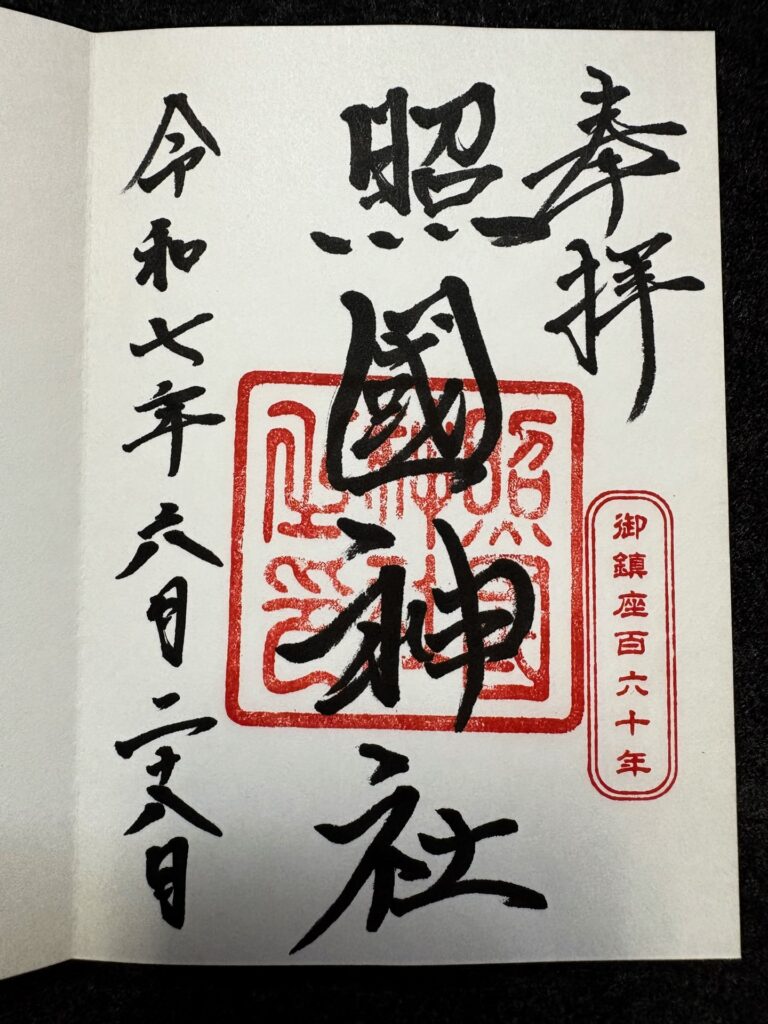 奉拝
照國神社
照國神社之印
御鎮座百六十年
令和七年六月二十八日